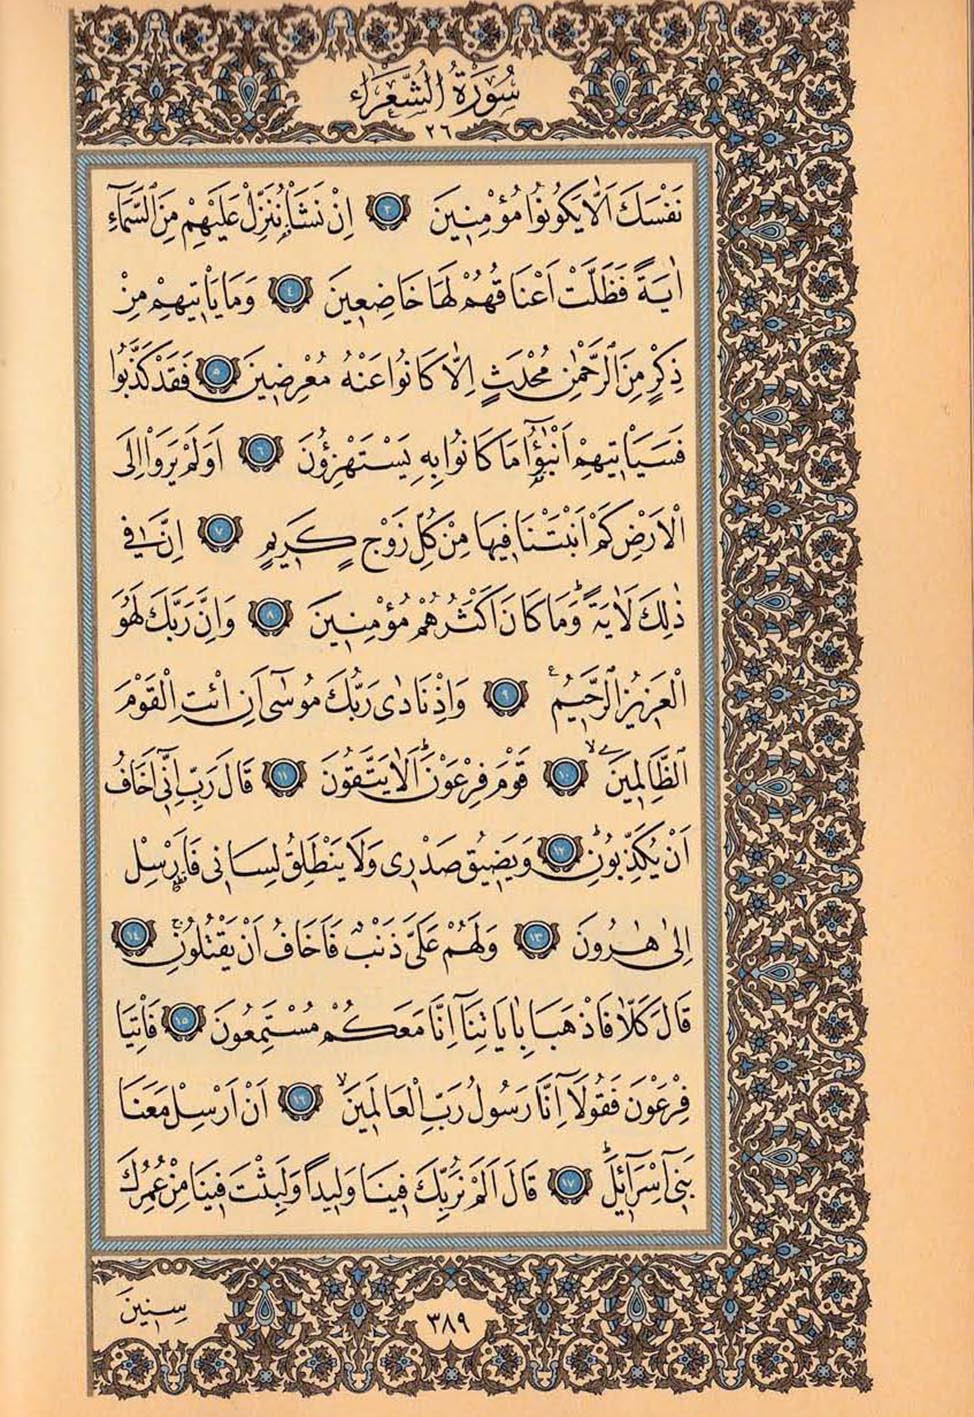 سُورَةُ الشُّعَرَاءِ
٢٦
نَفْسَكَ اَلَّا يَكُونُوا مُؤْمِنِينَ ٣ اِنْ نَشَأْ نُنَزِّلْ عَلَيْهِمْ مِنَ السَّمَٓاءِ
اٰيَةً فَظَلَّتْ اَعْنَاقُهُمْ لَهَا خَاضِعِينَ ٤ وَمَا يَأْتِيهِمْ مِنْ
ذِكْرٍ مِنَ الرَّحْمٰنِ مُحْدَثٍ اِلَّا كَانُوا عَنْهُ مُعْرِضِينَ ٥ فَقَدْ كَذَّبُوا
فَسَيَأْتِيهِمْ اَنْبٰٓؤُ۬ا مَا كَانُوا بِهِ يَسْتَهْزِؤُنَ ٦ اَوَلَمْ يَرَوْا اِلَى
الْاَرْضِ كَمْ اَنْبَتْنَا فِيهَا مِنْ كُلِّ زَوْجٍ كَرِيمٍ ٧ اِنَّ فِي
ذٰلِكَ لَاٰيَةًۜ وَمَا كَانَ اَكْثَرُهُمْ مُؤْمِنِينَ ٨ وَاِنَّ رَبَّكَ لَهُوَ
الْعَزِيزُ الرَّحِيمُ ٩ وَاِذْ نَادٰى رَبُّكَ مُوسٰٓى اَنِ ائْتِ الْقَوْمَ
الظَّالِمِينَۙ ١٠ قَوْمَ فِرْعَوْنَۜ اَلَا يَتَّقُونَ ١١ قَالَ رَبِّ اِنِّٓي اَخَافُ
اَنْ يُكَذِّبُونِۜ ١٢ وَيَضِيقُ صَدْرِي وَلَا يَنْطَلِقُ لِسَانِي فَاَرْسِلْ
اِلٰى هٰرُونَ ١٣ وَلَهُمْ عَلَيَّ ذَنْبٌ فَاَخَافُ اَنْ يَقْتُلُونِۚ ١٤
قَالَ كَلَّاۚ فَاذْهَبَا بِاٰيَاتِنَٓا اِنَّا مَعَكُمْ مُسْتَمِعُونَ ١٥ فَأْتِيَا
فِرْعَوْنَ فَقُولَٓا اِنَّا رَسُولُ رَبِّ الْعَالَمِينَۙ ١٦ اَنْ اَرْسِلْ مَعَنَا
بَنِٓي اِسْرَٓائِلَۜ ١٧ قَالَ اَلَمْ نُرَبِّكَ فِينَا وَلِيدًا وَلَبِثْتَ فِينَا مِنْ عُمُرِكَ
سِنِينَ
٣٨٩